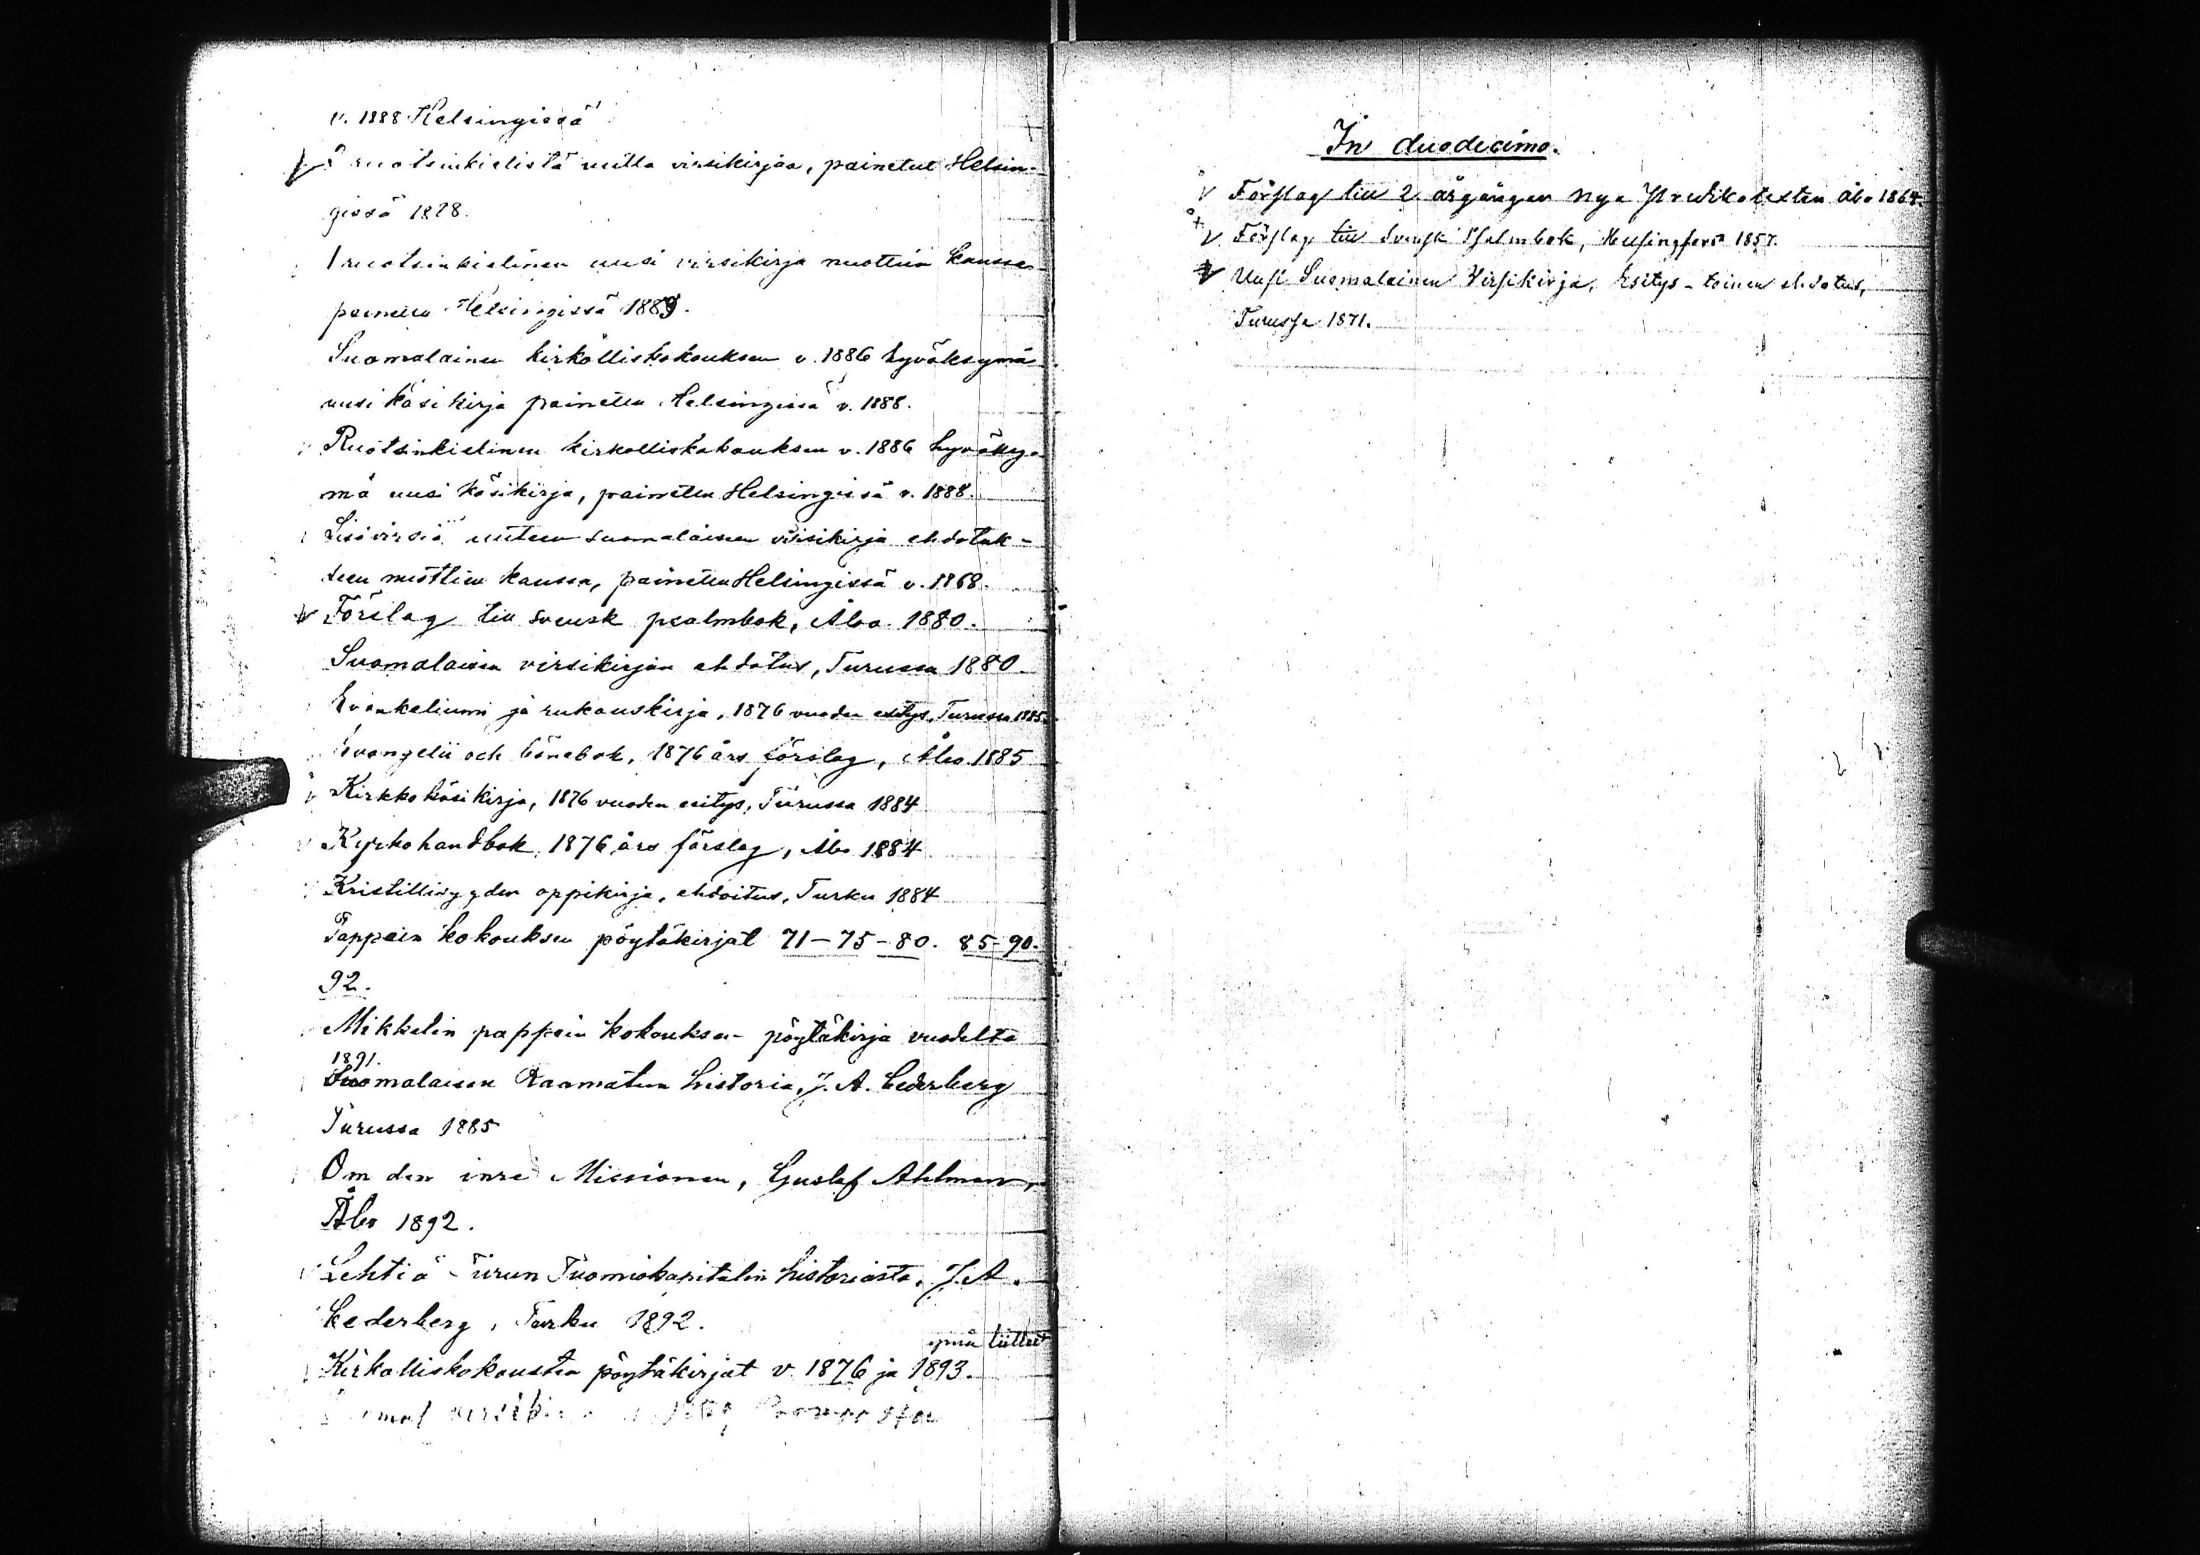 v. 1888 Helsingissä
ruotsinkielistä uutta virsikirjaa, painetut Helsin-
gissä 1888.
1 ruotsinkielinen uusi virsikirja nuottein kanssa
painettu Helsingissä 1889.
Suomalainen kirkolliskokouksen v. 1886 hyväksymä
uusi käsikirja painettu Helsingissä v. 1888.
Ruotsinkielinen kirkolliskokouksen v. 1886 hyväksy-
mä uusi käsikirja, painettu Helsingissä v. 1888.
Lisävirsiä uuteen suomalaiseen virsikirja ehdotuk-
seen nuottien kanssa, painettu Helsingissä v. 1868.
Förslag till svensk psalmbok, Åbo. 1880.
Suomalaisen virsikirjan ehdotus, Turussa 1880.
Evankeliumi ja rukouskirja, 1876 vuoden esitys, Turussa 1885.
Evangelii och bönebok, 1876 års förslag, Åbo 1885
Kirkkokäsikirja, 1876 vuoden esitys, Turussa 1884
Kyrkohandbok, 1876 års förslag, Åbo 1884
Kristillisyyden oppikirja, ehdoitus, Turku 1884
Pappein kokouksen pöytäkirjat 71-75-80. 85-90.
92.
Mikkelin pappein kokouksen pöytäkirja vuodelta
1891.
Suomalaisen Raamatun historia, J. A. Cederberg
Turussa 1885
Om den inre Missionen, Gustaf Ahlman,
Åbo 1892.
Lehtiä Turun Tuomiokapitulin historiasta, J. A.
Cederberg, Turku 1892.
ynnä liitteet
Kirkolliskokousten pöytäkirjat v. 1876 ja 1893.
In duodecimo.
Förslag till 2 årgångar nya Predikotexter Åbo 1864.
Förslag till Svensk Psalmbok, Helsingfors 1857.
Uusi Suomalainen Virsikirja, Esitys - toinen ehdotus,
Turussa 1871.